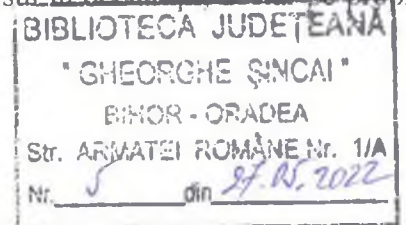 BIBLIOTECA JUDEȚEANĂ
"GHEORGHE ȘINCAI"
BIHOR - ORADEA
Str. ARMATEI ROMÂNE Nr. 1/A
Nr. 5 din 27.05.2022